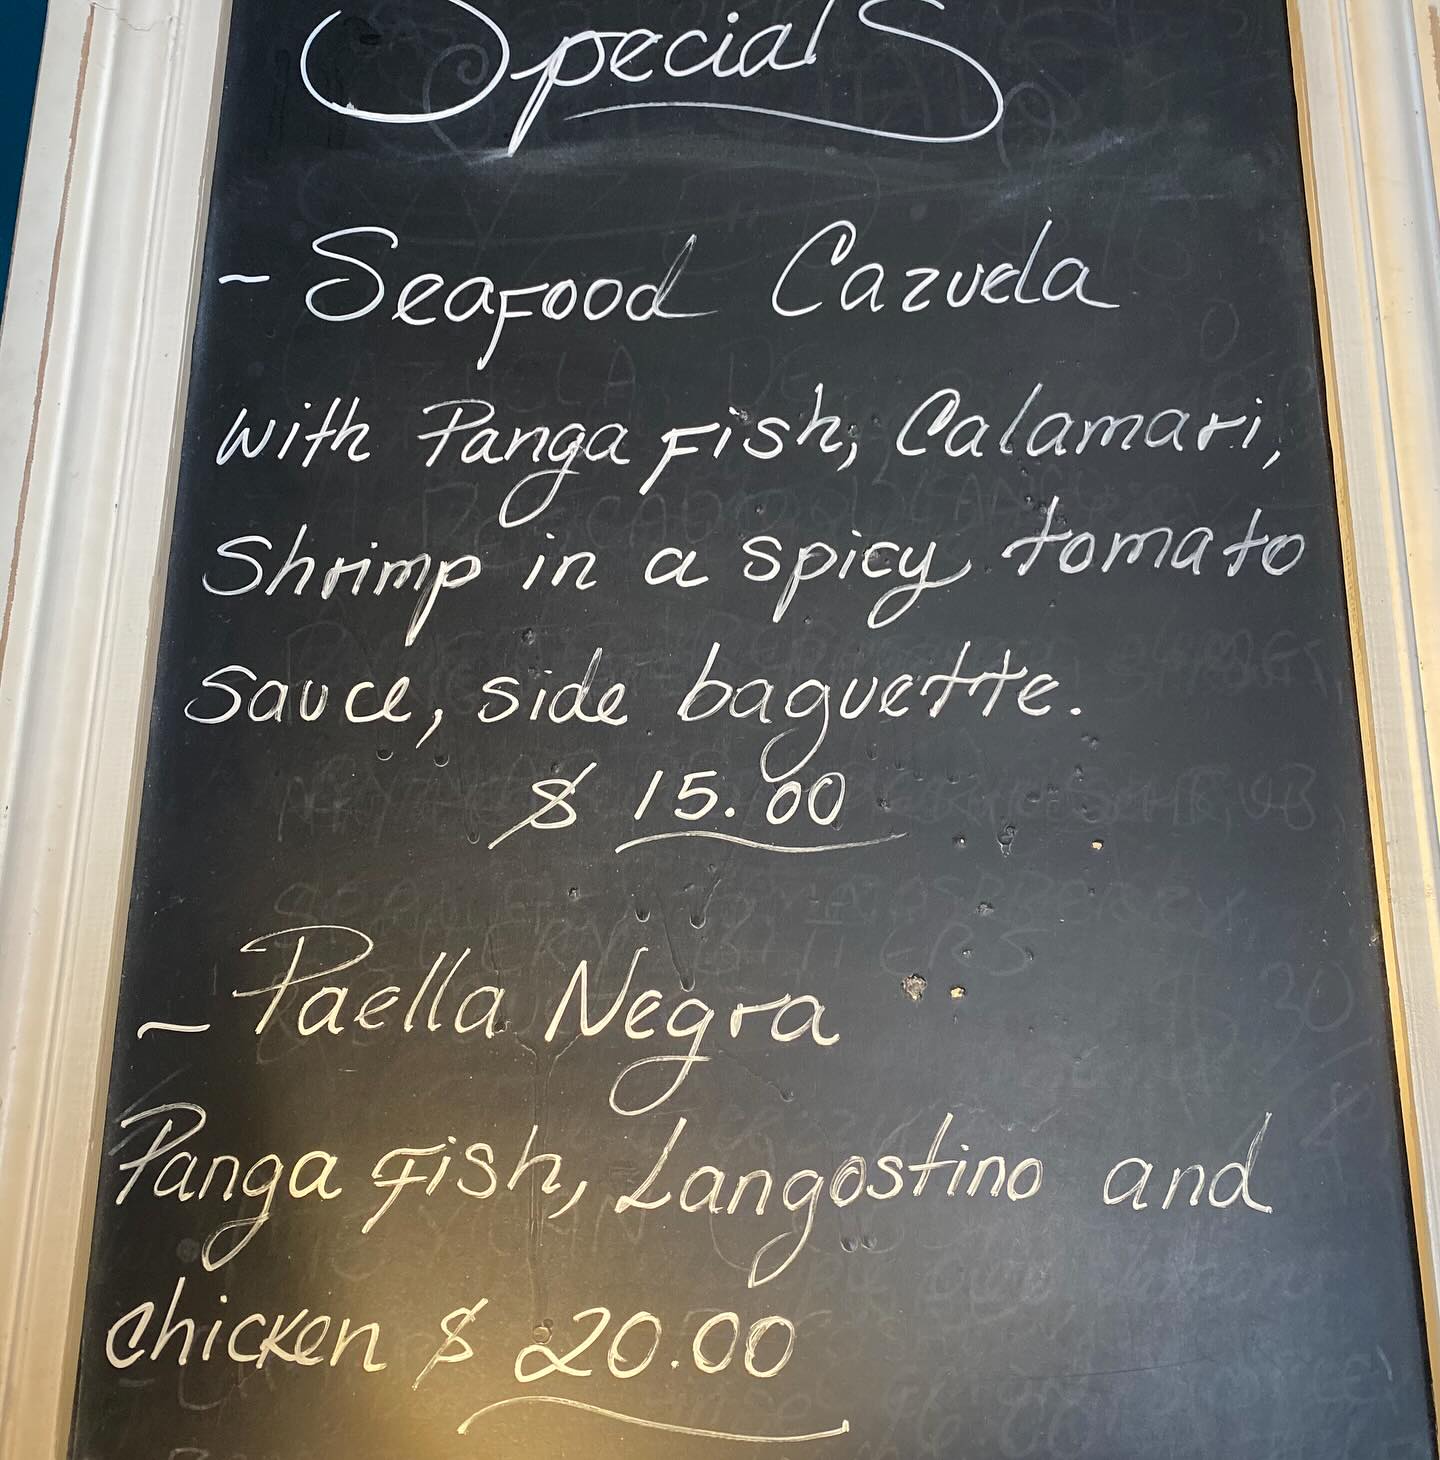 Specials
~ Seafood Cazuela
with Panga Fish, Calamari,
Shrimp in a spicy tomato
sauce, side baguette.
$ 15.00
~ Paella Negra
Panga Fish, Langostino and
chicken $ 20.00